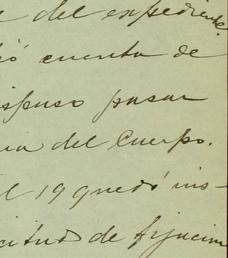 e del expediente
ó cuenta de
ispuso pasar
na del Cuerpo.
l 19 quedó ins-
citud de fijación